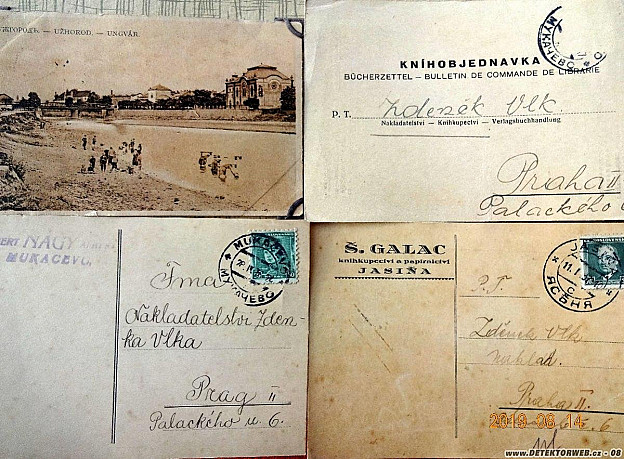 УЖГОРОДЪ. — UŽHOROD. — UNGVÁR.
МУКАЧЕВО
KNÍHOBJEDNAVKA
BÜCHERZETTEL — BULLETIN DE COMMANDE DE LIBRAIRIE
P. T. Zdenek Vlk.
Nakladatelství — Knihkupectví — Verlagsbuchhandlung
Praha II
Palackého
NAGY
MUKAČEVO
MUKAČEVO
МУКАЧЕВО
Firma
Nakladatelství Zden-
ka Vlka
Prag II
Palackého u. 6.
Š. GALAC
knihkupectví a papírnictví
JASIŇA
ЯСѢНЯ
P. T.
Zdeněk Vlk
Praha II.
6
2019 06 14
www.DETEKTORWEB.cz - 08